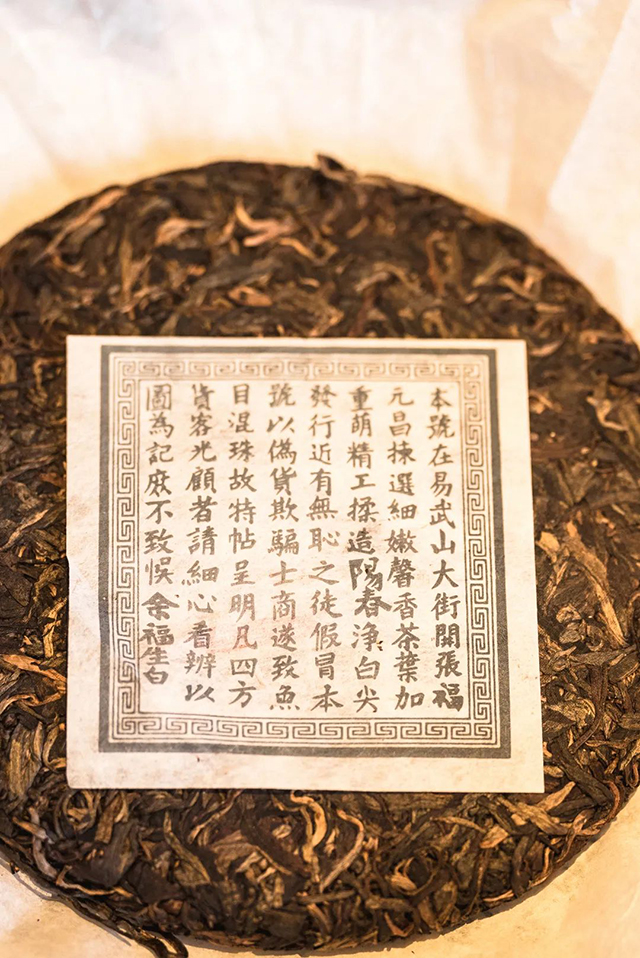 本號在易武山大街開張福
元昌揀選細嫩馨香茶葉加
重萌精工揉造陽春淨白尖
發行近有無恥之徒假冒本
號以偽貨欺騙士商遂致魚
目混珠故特帖呈明凡四方
貴客光顧者請細心看辨以
圖為記庶不致悞余福生白